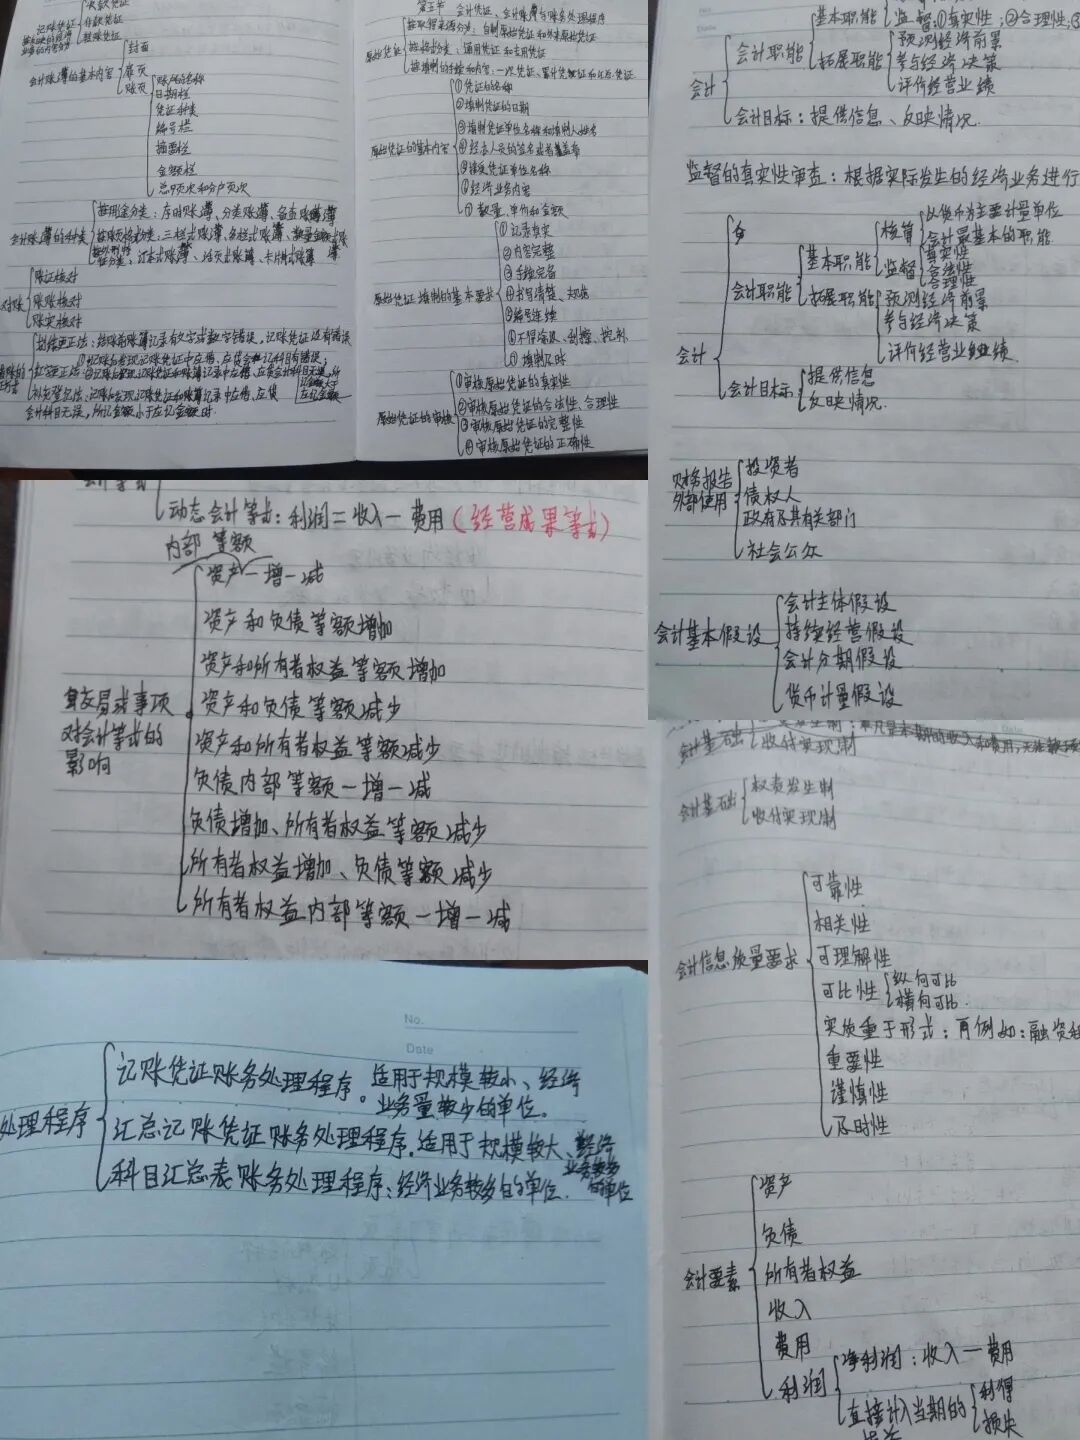 记账凭证
收款凭证
付款凭证
转账凭证
会计账簿的基本内容
封面
扉页
账页
账户的名称
日期栏
凭证种类
编号栏
摘要栏
金额栏
总页次和分户页次
会计账簿的种类
按用途分类：序时账簿、分类账簿、备查账簿
按账页格式分类：三栏式账簿、多栏式账簿、数量金额式账簿
按外形特征分类：订本式账簿、活页式账簿、卡片式账簿
对账
账证核对
账账核对
账实核对
划线更正法：结账前账簿记录有文字或数字错误，记账凭证没有错误
红字更正法：①记账后发现记账凭证中应借、应贷会计科目有错误；
②记账后发现记账凭证和账簿记录中应借、应贷会计科目无误，所记金额大于应记金额
补充登记法：记账后发现记账凭证和账簿记录中应借、应贷
会计科目无误，所记金额小于应记金额时.
会计凭证、会计账簿与账务处理程序
原始凭证
按取得来源分类：自制原始凭证和外来原始凭证
按格式分类：通用凭证和专用凭证
按填制的手续和内容：一次凭证、累计凭证和汇总凭证
原始凭证的基本内容
①凭证的名称
②填制凭证的日期
③填制凭证单位名称和填制人姓名
④经办人员的签名或者盖章
⑤接受凭证单位名称
⑥经济业务内容
⑦数量、单价和金额
原始凭证填制的基本要求
①记录真实
②内容完整
③手续完备
④书写清楚、规范
⑤编号连续
⑥不得涂改、刮擦、挖补
⑦填制及时
原始凭证的审核
①审核原始凭证的真实性
②审核原始凭证的合法性、合理性
③审核原始凭证的完整性
④审核原始凭证的正确性
会计
会计职能
基本职能
监督：①真实性；②合理性；③
拓展职能
预测经济前景
参与经济决策
评价经营业绩
会计目标：提供信息、反映情况.
监督的真实性审查：根据实际发生的经济业务进行
会计
会计职能
基本职能
核算
以货币为主要计量单位
会计最基本的职能
监督
真实性
合法性
合理性
拓展职能
预测经济前景
参与经济决策
评价经营业绩
会计目标
提供信息
反映情况.
财务报告
外部使用
投资者
债权人
政府及其有关部门
社会公众
会计基本假设
会计主体假设
持续经营假设
会计分期假设
货币计量假设
会计等式
动态会计等式：利润=收入一费用(经营成果等式)
内部 等额
资产一增一减
资产和负债等额增加
资产和所有者权益等额增加
交易或事项
对会计等式的
影响
资产和负债等额减少
资产和所有者权益等额减少
负债内部等额一增一减
负债增加、所有者权益等额减少
所有者权益增加、负债等额减少
所有者权益内部等额一增一减
会计基础
收付实现制
会计基础
权责发生制
收付实现制
会计信息质量要求
可靠性
相关性
可理解性
可比性
纵向可比
横向可比.
实质重于形式：再例如：融资租
重要性
谨慎性
及时性
会计要素
资产
负债
所有者权益
收入
费用
利润
净利润：收入一费用
直接计入当期的
利得
损失
No.
Date
处理程序
记账凭证账务处理程序。适用于规模较小、经济
业务量较少的单位。
汇总记账凭证账务处理程序.适用于规模较大、经济
业务较多
的单位
科目汇总表账务处理程序：经济业务较多的单位.